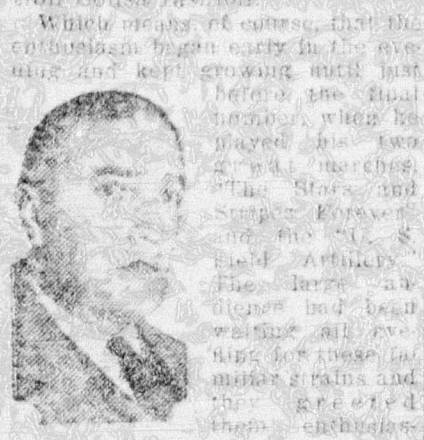 Which means, of course, that the
enthusiasm began early in the eve-
ning and kept growing until just
before the final
number, when he
played his two
great marches,
"The Stars and
Stripes Forever"
and the "U. S.
Field Artillery."
The large au-
dience had been
waiting all eve-
ning for these fa-
miliar strains and
they greeted
them enthusias-